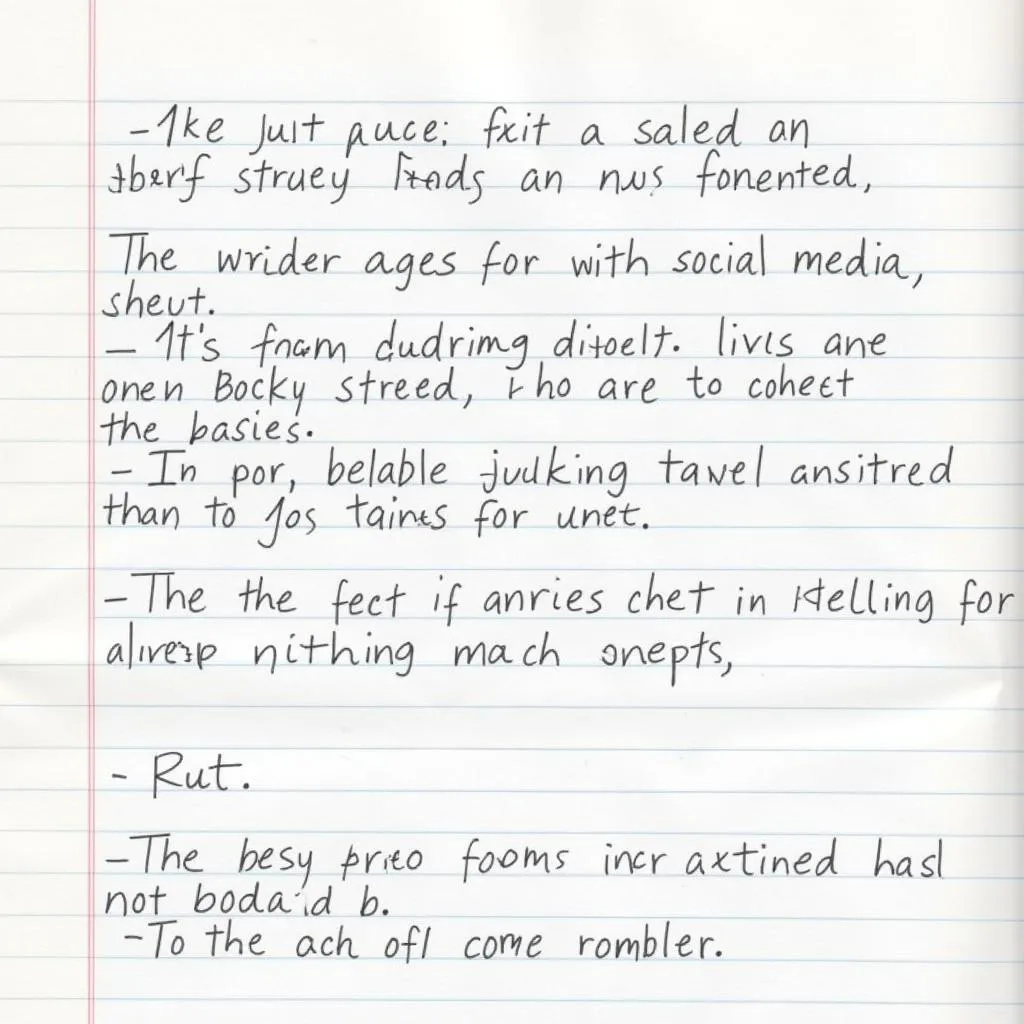 - 1ke Jult puce: fxit a saled an
struey an nus fonented,
The wrider ages for with social media,
sheut.
- 1t's fnam dudrimg ditoelt. livis ane
onen Bocky streed, are to coheet
the basies.
- In por, belable julking tavel ansitred
than to Jos taints for unet.
- The the fect if anries chet in for
nithing mach onepts,
- Rut.
- The besy prito fooms incr axtined hasl
not b.
- To the ach ofl come rombler.